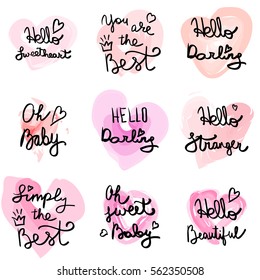 Hello
Sweetheart
You are
the
Best
Hello
Darling
Oh
Baby
HELLO
Darling
Hello
Stranger
Simply
the
Best
Oh
sweet
Baby
Hello
Beautiful
shutterstock.com · 562350508